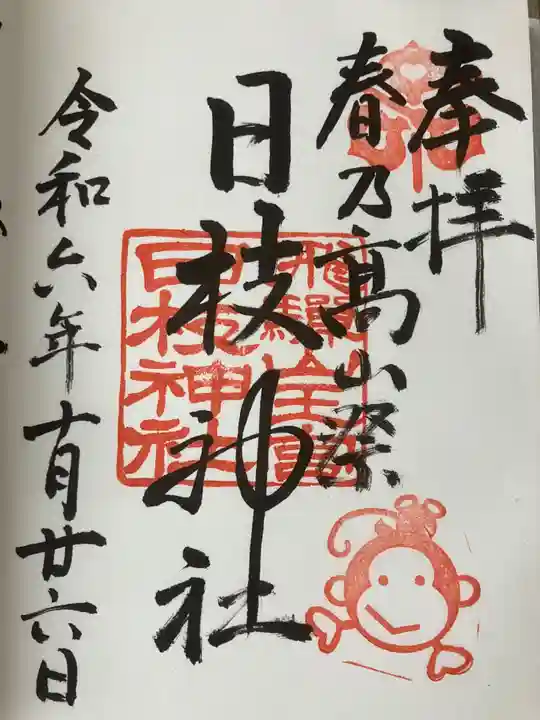 奉拝
春乃高山祭
日枝神社
飛騨
日枝神社
令和六年十月廿六日